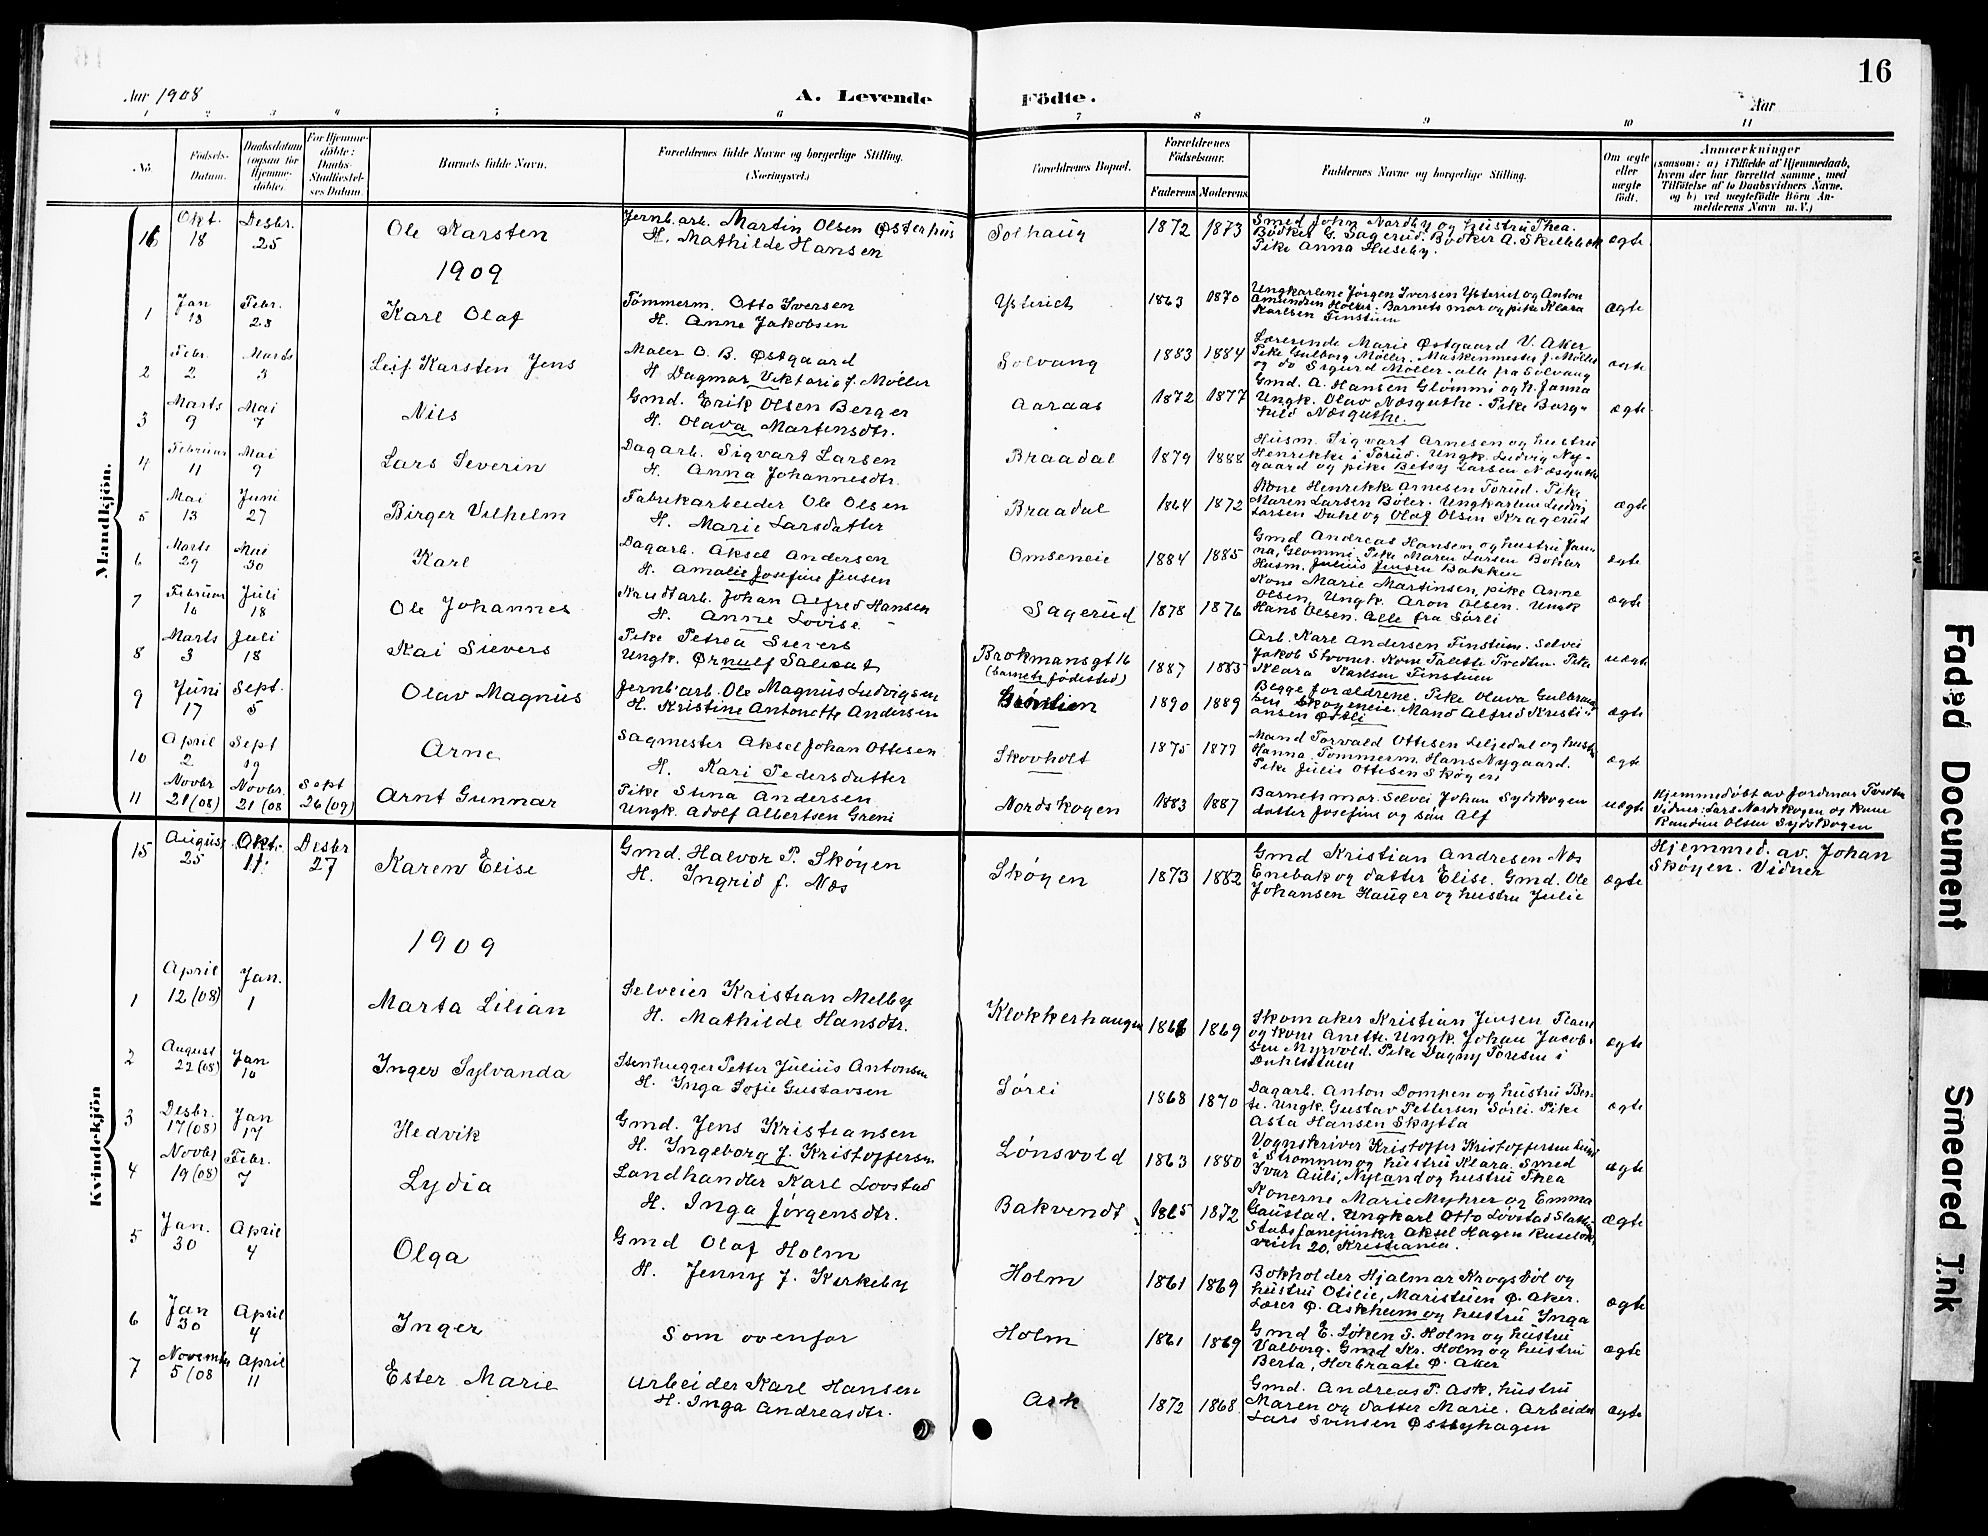 Aar 1908
A. Levende Födte.
Aar
16
1 2 3 4 5 6 7 8 9 10 11
No.
Födsels-
Datum.
Daabsdatum
(ogsaa for
Hjemme-
döbte).
For Hjemme-
döbte:
Daabs-
Stadfæstel-
ses Datum.
Barnets fulde Navn.
Forældrenes fulde Navne og borgerlige Stilling.
(Næringsvei.)
Forældrenes Bopæl.
Forældrenes
Födselsaar.
Faderens
Moderens
Faddernes Navne og borgerlige Stilling.
Om ægte
eller
uægte
födt.
Anmærkninger
(saasom: a) i Tilfælde af Hjemmedaab,
hvem der har forrettet samme, med
Tilföielse af to Daabsvidners Navne.
og b) ved uægtefödte Börn An-
melderens Navn m. V.)
Mandkjön.
16 Okt. 18 Desbr. 25 Ole Karsten
Jernb.arb. Martin Olsen Østerhus
H. Mathilde Hansen
Solhaug 1872 1873
Smed John Nordby og hustru Thea.
Bødker G. Sagerud. Bødker A. Skillebek
Pike Anna Huseby.
ægte
1909
1 Jan 18 Febr. 28 Karl Olaf
Tømmerm. Otto Iversen
H. Anne Jakobsen
Ysterict 1863 1870
Ungkarlene Jørgen Iversen Ysteriet og Anton
Amundsen Holter. Barnets mor og pike Klara
Karlsen Finstuen
ægte
2 Febr. 2 Marts 3 Leif Karsten Jens
Maler O. B. Østgaard
H. Dagmar Viktoria f. Möller
Solvang 1883 1884
Lærerinde Marie Østgaard V. Aker
Pike Gulborg Möller. Maskinmester J. Möller
og do Sigurd Möller - alle fra Solvang
ægte
3 Marts 9 Mai 7 Nils
Gmd. Erik Olsen Berger
H. Olava Martensdtr.
Aaraas 1872 1877
Gmd. A. Hansen Glømmi og h. Janna
Ungk. Olav Næsguthe. Pike Borg-
hild Næsguthe.
ægte
4 Februar 11 Mai 9 Lars Severin
Dagarb. Sigvart Larsen
H. Anna Johannesdtr.
Braadal 1879 1888
Husm. Sigvart Arnesen og hustru
Henrikke i Torud. Ungk. Ludvig Ny-
gaard og pike Betsy Larsen Næsguthe
5 Mai 13 Juni 27 Birger Vilhelm
Fabrikarbeider Ole Olsen
H. Marie Larsdatter
Braadal 1864 1872
Kone Henrikke Arnesen Torud. Pike
Maren Larsen Böler. Ungkarlene Ludvig
Larsen Dahl og Olaf Olsen Kragerud
ægte
6 Marts 29 Mai 30 Karl
Dagarb. Aksel Andersen
H. Amalie Josefine Jensen
Omseneie 1884 1885
Gmd Andreas Hansen og hustru Jan-
na, Glommi. Pike Maren Larsen Bohler
Husm. Julius Jensen Bakken
ægte
7 Februar 10 Juli 18 Ole Johannes
Johan Alfred Hansen
H. Anne Lovise
Sagerud 1878 1876
Kone Marie Martinsen, pike Anne
Olsen, Ungk. Aron Olsen. Ungk
Hans Olsen. Alle fra Sørli
ægte
8 Marts 3 Juli 18 Kai Sievers
Pike Petrea Sievers
Ungk. Ørnulf Salicat
Brokmansgt 16
(barnets fødested)
1887 1885
Arb. Karl Andersen Finstuen. Selvei
Jakob Skovner. Kone Talette Tvedten. Pike
Klara Karlsen Finstuen
uægte
9 Juni 17 Sept. 5 Olav Magnus
Jernb.arb. Ole Magnus Ludvigsen
H. Kristine Antonette Andersen
Grönlien 1890 1889
Begge forældrene. Pike Olava Gulbrand-
sen Skogeneie. Mand Alfred Kristi-
ansen Østli
ægte
10 April 2 Sept 19 Arne
Sagmester Aksel Johan Ottesen
H. Kari Pedersdatter
Skovholt 1875 1877
Mand Torvald Ottesen Liljedal og hustru
Hanna. Tømmerm. Hans Nygaard.
Pike Julie Ottesen Skøyen
ægte
11 Novbr 21 (08) Novbr. 21 (08 Sept 26 (09) Arnt Gunnar
Pike Stina Andersen
Ungk. Adolf Albertsen Greni
Nordskogen 1883 1887
Barnets mor. Selvei Johan Sydskogen
datter Josefine og søn Alf
uægte
Hjemmedøbt av jordmor Tvedten
Vidner: Lars Nordskogen og kone
Randine Olsen Sydskogen
Kvindekjön
15 August 25 Okt. 11 Desbr 27 Karen Elise
Gmd. Halvor P. Skøyen
H. Ingrid f. Næs
Skøyen 1873 1882
Gmd Kristian Andresen Næs
Enebak og datter Elise. Gmd. Ole
Johansen Hauger og hustru Julie
ægte
Hjemmed. av. Johan
Skøyen. Vidner
1909
1 April 12 (08) Jan. 1 Marta Lilian
Selveier Kristian Melby
H. Mathilde Hansdtr.
Klokkerhaugen 1866 1869
Skomaker Kristian Jensen
og kone Anette. Ungk. Johan Jacob-
sen Myrvold. Pike Dagny Toresen i
Dahlstuen
ægte
2 August 22 (08) Jan 10 Inger Sylvanda
Stenhugger Petter Julius Antonsen
H. Inga Sofie Gustavsen
Sørli 1868 1870
Dagarb. Anton Dompen og hustru Ber-
te. Ungk. Gustav Pettersen Sørli. Pike
Asta Hansen Skytta
ægte
3 Desbr. 17 (08) Jan 17 Hedvik
Gmd. Jens Kristiansen
H. Ingeborg f. Kristoffersen
Lønsvold 1863 1880
Vognskriver Kristoffer Kristoffersen
i Strømmen og hustru Klara. Smed
Ivar Auli, Nyland og hustru Thea
ægte
4 Novbr 19 (08) Febr. 7 Lydia
Landhandler Karl Lovstad
H. Inga Jørgensdtr.
Bakvendt 1865 1872
Konerne Marie Myhrer og Emma
Gaustad. Ungkarl Otto Løvstad
Stabsfanejunker Aksel Hagen
veien 20, Kristiania.
ægte
5 Jan. 30 April 4 Olga
Gmd Olaf Holm
H. Jenny f. Kirkeby
Holm 1861 1869
Bokholder Hjalmar Krogsbøl og
hustru Otilie, Maristuen Ø. Aker.
Lærer Ø. Askheim og hustru Inga
ægte
6 Jan 30 April 4 Inger
Som ovenfor
Holm 1861 1869
Gmd E. Løken S. Holm og hustru
Valborg. Gmd Kr. Holm og hustru
Berta, Horbraate Ø. Aker
ægte
7 November 5/08 April 11 Ester Marie
Arbeider Karl Hansen
H. Inga Andreasdtr.
Ask 1872 1868
Gmd. Andreas P. Ask, hustru
Maren og datter Marie. Arbeider
Lars Svinsen Østbyhagen
ægte
Faded Document
Smeared Ink